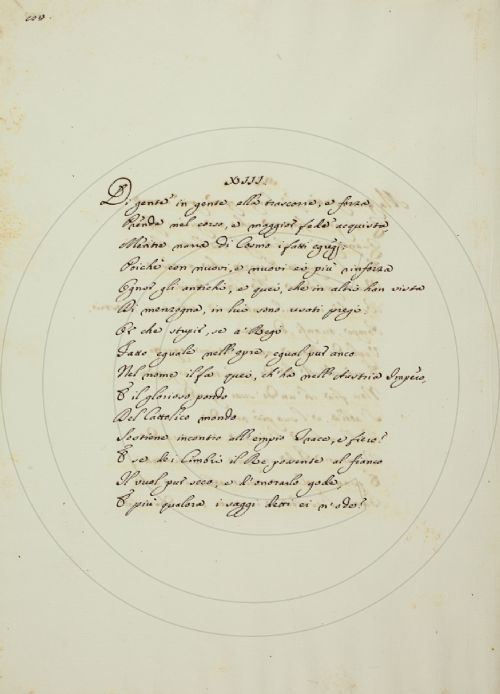 XIII.
Di gente in gente ella trascorre, e forza
Prende nel corso, e maggior fede acquista
Mentre narra di Cosmo i fatti egregj:
Poichè con nuovi, e nuovi ei più rinforza
Ognor gli antichi, e quei, che in altri han vista
Di menzogna, in lui sono usati pregi.
Or che stupir, se a' Regi
Fatto eguale nell'opre, egual pur anco
Nel nome il fa quei, ch'ha nell'Austria Impero,
E il glorioso pondo
Del Cattolico mondo
Sostiene incontro all'empio Trace, e fiero?
E se dei Cimbri il Re possente al fianco
Il vuol pur seco, e d'onorarlo gode,
E più qualora i saggi detti ei n'ode?